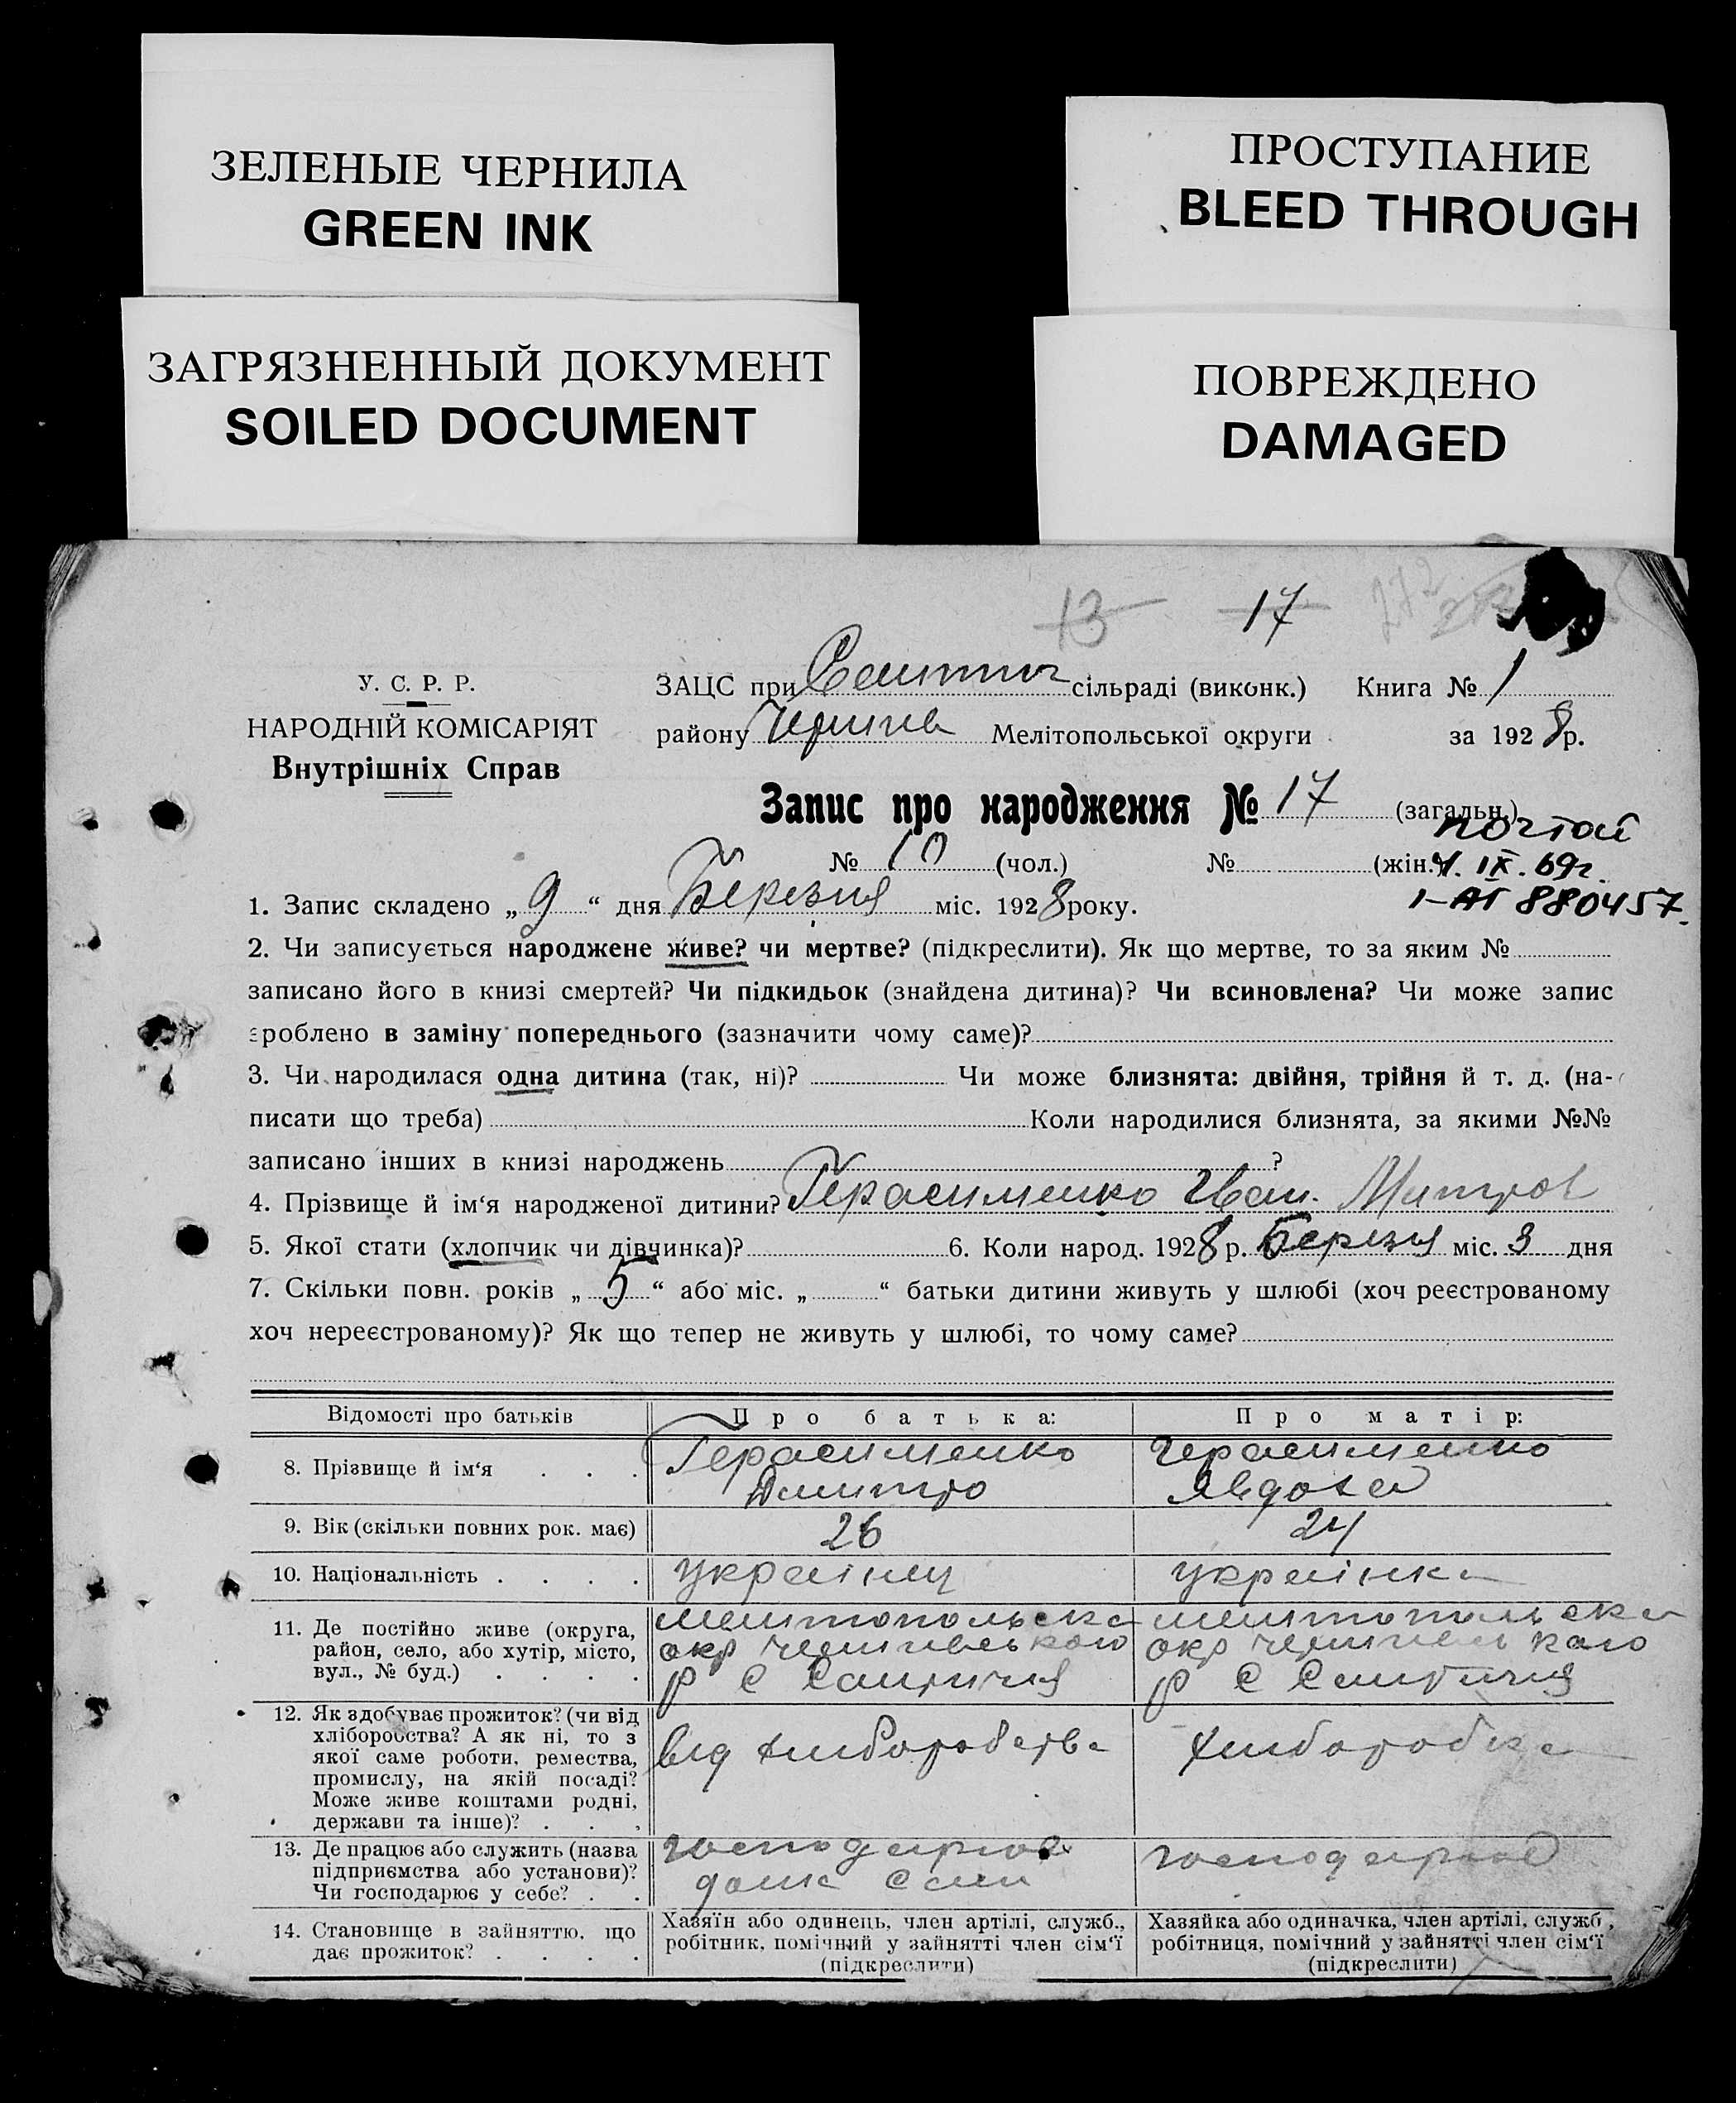 ЗЕЛЕНЫЕ ЧЕРНИЛА
GREEN INK
ПРОСТУПАНИЕ
BLEED THROUGH
ЗАГРЯЗНЕННЫЙ ДОКУМЕНТ
SOILED DOCUMENT
ПОВРЕЖДЕНО
DAMAGED
13 17
У. С. Р. Р.
НАРОДНІЙ КОМІСАРІЯТ
Внутрішніх Справ
ЗАЦС при сільраді (виконк.) Книга № 1
району Мелітопольської округи за 1928 р.
Запис про народження № 17 (загальн.)
почтой
№ 10 (чол.) № (жін.) IX. 69г.
1. Запис складено „ 9 “ дня Березня міс. 1928 року. I-АГ 880457
2. Чи записується народжене живе? чи мертве? (підкреслити). Як що мертве, то за яким №
записано його в книзі смертей? Чи підкидьок (знайдена дитина)? Чи всиновлена? Чи може запис
зроблено в заміну попереднього (зазначити чому саме)?
3. Чи народилася одна дитина (так, ні)? Чи може близнята: двійня, трійня й т. д. (на-
писати що треба) Коли народилися близнята, за якими №№
записано інших в книзі народжень ?
4. Прізвище й ім‘я народженої дитини? Герасименко Иван. Митров
5. Якої стати (хлопчик чи дівчинка)? 6. Коли народ. 1928 р. Березня міс. 3 дня
7. Скільки повн. років „ 5 “ або міс. „ “ батьки дитини живуть у шлюбі (хоч реєстрованому
хоч нереєстрованому)? Як що тепер не живуть у шлюбі, то чому саме?
Відомості про батьків Про батька: Про матір:
8. Прізвище й ім‘я . . . Герасименко Дмитро Герасименко Явдоха
9. Вік (скільки повних рок. має) 26 24
10. Національність . . . . українц українка
11. Де постійно живе (округа,
район, село, або хутір, місто,
вул., № буд.) . . . .
мелитопольска мелитопольска
окр чернигвського окр чернигвського
р с р с
12. Як здобуває прожиток? (чи від
хліборобства? А як ні, то з
якої саме роботи, ремества,
промислу, на якій посаді?
Може живе коштами родні,
держави та інше)? . . .
від хлиборобства хлиборобка
13. Де працює або служить (назва
підприємства або установи)?
Чи господарює у себе? . .
господарює господарює
дома сам
14. Становище в зайняттю, що
дає прожиток? . . . .
Хазяїн або одинець, член артілі, служб.,
робітник, помічний у зайнятті член сім‘ї
(підкреслити)
Хазяйка або одиначка, член артілі, служб.,
робітниця, помічний у зайнятті член сім‘ї
(підкреслити)